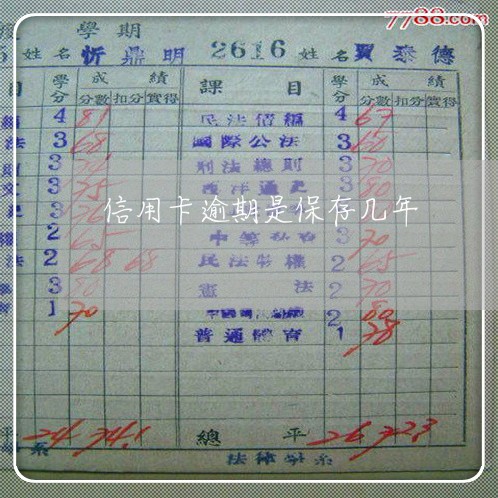 7788.com
學期
5 姓名 忻鼎明 2616 姓名 賈泰德
目 學分 成績 課目 學分 成績
分數 扣分 實得 分數 扣分 實得
4 81 民法債編 4 67
法 3 68 國際公法 3 60
3 刑法總則 3 70
3 75 西洋通史 3 80
信用卡逾期是保存几年
2 65 3 70
法 2 68 68 民法物權 2 65
3 80 憲法 2 70
1 70 2 80
普通體育 1 78
平 24 74.1 總平 26 72.3
系 法律學系